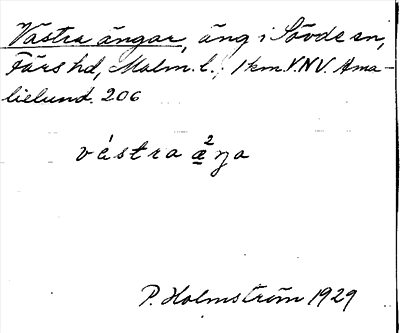 Västra ängar, äng i Sövde sn,
Färs hd, Malm. l.; 1 km. V.N.V. Ama-
lielund. 206
véstra æ̠²ŋa
P. Holmström 1929